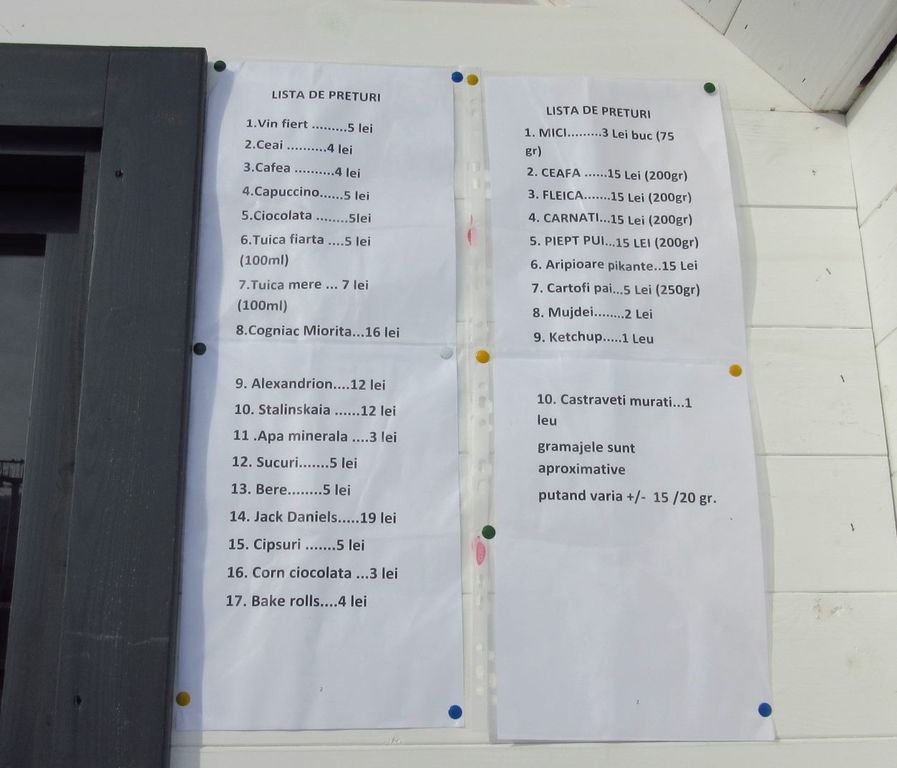 LISTA DE PRETURI
1.Vin fiert .........5 lei
2.Ceai ..........4 lei
3.Cafea ..........4 lei
4.Capuccino......5 lei
5.Ciocolata ........5lei
6.Tuica fiarta ....5 lei
(100ml)
7.Tuica mere ... 7 lei
(100ml)
8.Cogniac Miorita...16 lei
9. Alexandrion....12 lei
10. Stalinskaia ......12 lei
11 .Apa minerala ....3 lei
12. Sucuri.......5 lei
13. Bere........5 lei
14. Jack Daniels.....19 lei
15. Cipsuri .......5 lei
16. Corn ciocolata ...3 lei
17. Bake rolls....4 lei
LISTA DE PRETURI
1. MICI.........3 Lei buc (75
gr)
2. CEAFA ......15 Lei (200gr)
3. FLEICA.......15 Lei (200gr)
4. CARNATI...15 Lei (200gr)
5. PIEPT PUI...15 LEI (200gr)
6. Aripioare pikante..15 Lei
7. Cartofi pai...5 Lei (250gr)
8. Mujdei........2 Lei
9. Ketchup.....1 Leu
10. Castraveti murati...1
leu
gramajele sunt
aproximative
putand varia +/- 15 /20 gr.